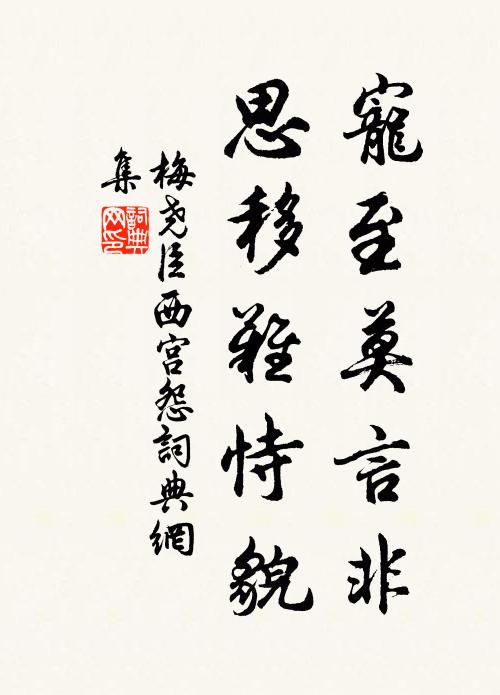 寵至莫言非
思移難恃貌
梅尧臣西宮怨詞典網
集
詞典
网印